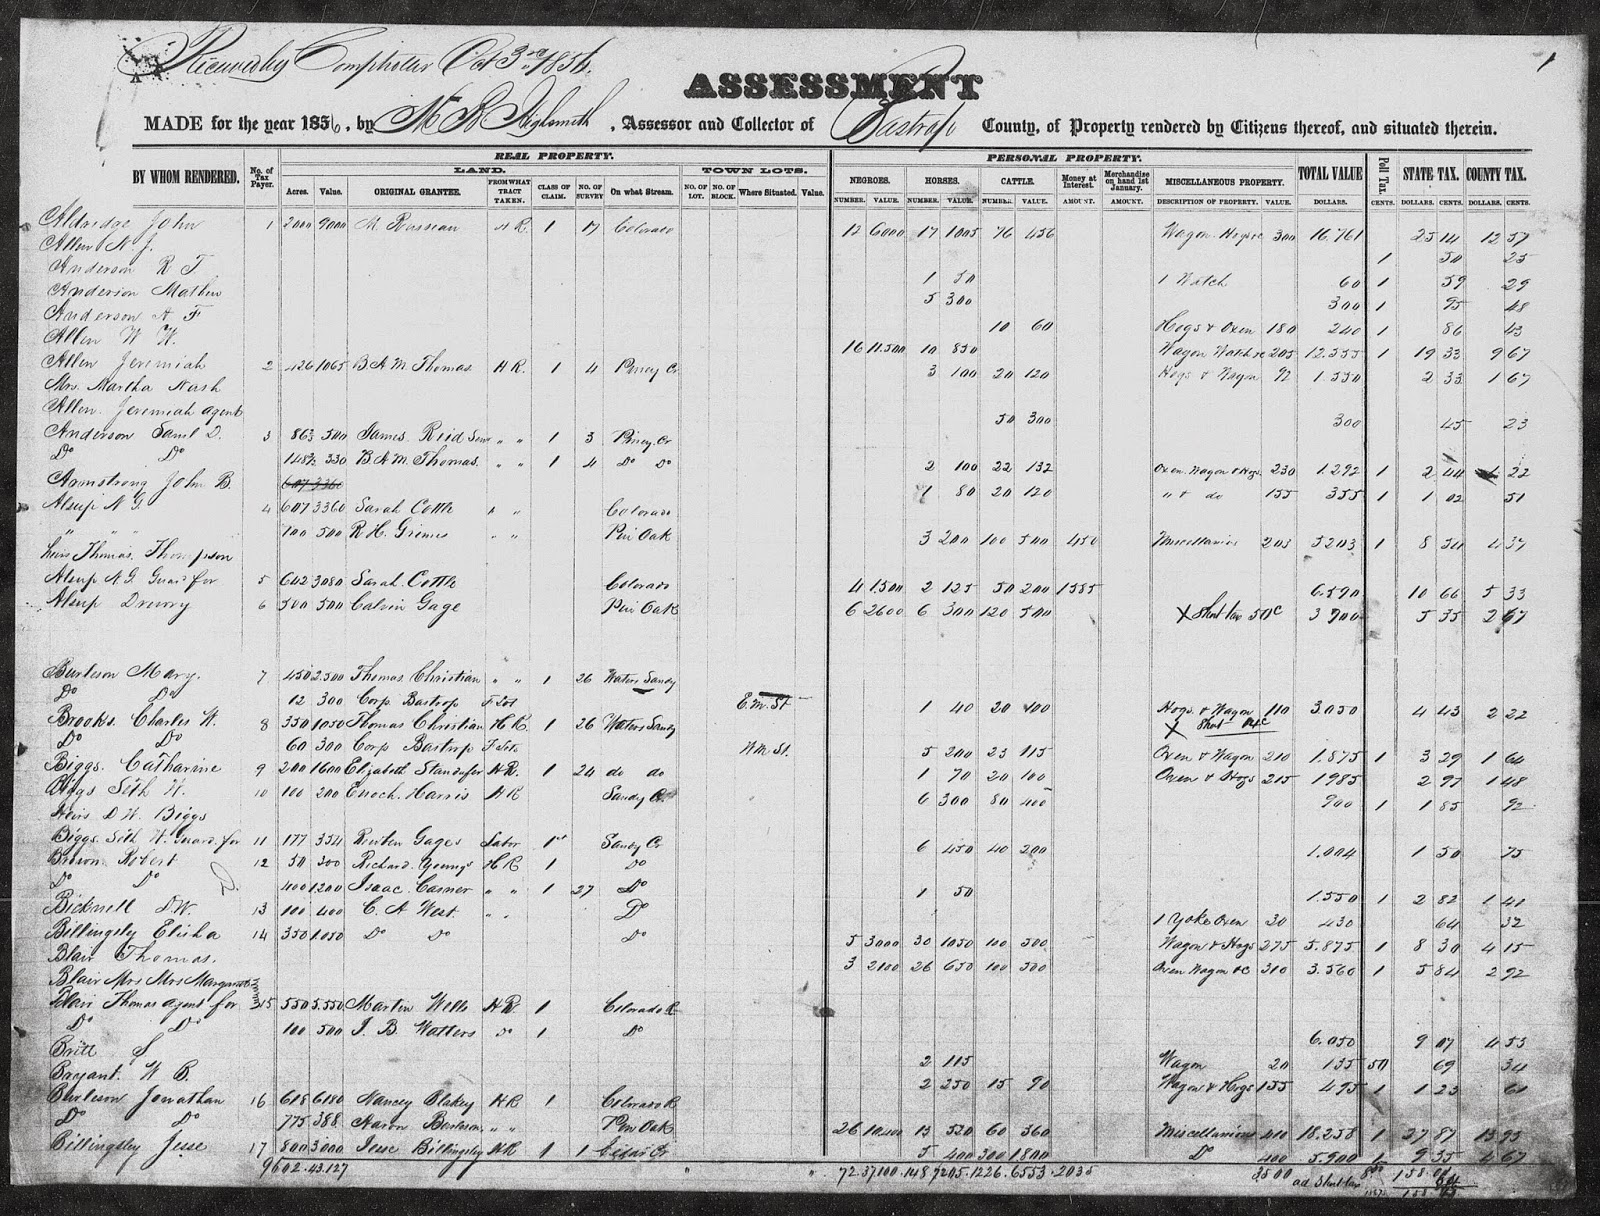 Received by Comptroller Oct 3rd 1856.
1
ASSESSMENT
MADE for the year 1856, by M B Highsmith, Assessor and Collector of Bastrop County, of Property rendered by Citizens thereof, and situated therein.
REAL PROPERTY. PERSONAL PROPERTY.
BY WHOM RENDERED. No. of Tax Payer. LAND. TOWN LOTS. NEGROES. HORSES. CATTLE. Money at Interest. Merchandise on hand 1st January. MISCELLANEOUS PROPERTY. TOTAL VALUE Poll Tax. STATE TAX. COUNTY TAX.
Acres. Value. ORIGINAL GRANTEE. FROM WHAT TRACT TAKEN. CLASS OF CLAIM. NO. OF SURVEY On what Stream. NO. OF LOT. NO. OF BLOCK. Where Situated. Value. NUMBER. VALUE. NUMBER. VALUE. NUMBER. VALUE. AMOUNT. AMOUNT. DESCRIPTION OF PROPERTY. VALUE. DOLLARS. CENTS. DOLLARS. CENTS. DOLLARS. CENTS.
Aldridge John 1 2000 9000 M Rousseau H R. 1 17 Colorado 12 6000 17 1005 76 456 Wagon Hogs &c 300 16.761 25 14 12 57
Allen N. J. 1 50 25
Anderson R T 1 50 1 Watch 60 1 59 29
Anderson Mathew 5 300 300 1 95 48
Anderson A F 10 60 Hogs & Oxen 180 240 1 86 43
Allen W W. 16 11.500 10 850 Wagon Watch &c 205 12.555 1 19 33 9 67
Allen Jeremiah 2 426 1065 B A M Thomas H R. 1 4 Piney Cr 3 100 20 120 Hogs & Wagon 92 1.550 2 33 1 67
Mrs. Martha Nash
Allen Jeremiah agent 50 300 300 45 23
Anderson Saml D. 3 86⅔ 500 James Reid Senr " " 1 3 Piney Cr
Do Do 148⅔ 330 B A M Thomas. " " 1 4 Do Do 2 100 22 132 Oxen Wagon & Hogs 230 1.292 1 2 44 1 22
Armstrong John B. 607 3360 1 80 20 120 " & do 155 355 1 1 02 51
Alsup N G 4 607 3360 Sarah Cottle " " Colorado
" " 100 500 R H. Grimes " " Pin Oak 3 200 100 500 450 Miscellanies 203 5203 1 8 54 4 37
heirs Thomas Thompson
Alsup N G Guard for 5 642 3080 Sarah Cottle Colorado 4 1.500 2 125 50 200 1585 6.590 10 66 5 33
Alsup Drewry 6 500 500 Calvin Gage Pin Oak 6 2600 6 300 120 500 X Short tax 50c 3 900 5 35 2 67
Burleson Mary. 7 450 2.500 Thomas Christian " " 1 26 Waters Sandy
Do Do 12 300 Corp. Bastrop F Lot E. M. St 1 40 20 100 Hogs & Wagon 110 3.050 4 43 2 22
Brooks. Charles W. 8 350 1050 Thomas Christian H R. 1 26 Waters Sandy X Short
Do Do 60 300 Corp Bastrop F Lots W M. St. 5 200 23 115 Oxen & Wagon 210 1.875 1 3 29 1 64
Biggs. Catharine 9 200 1600 Elizabeth Standifer H R. 1 24 do do 1 70 20 100 Oxen & Hogs 215 1985 2 97 1 48
Biggs Seth W. 10 100 200 Enoch. Harris H R Sandy Cr 6 300 80 400 900 1 1 85 92
Heirs D W. Biggs
Biggs. Seth W. Guard. for 11 177 354 Reuben Gages Labor 1st Sandy Cr 6 450 40 200 1.004 1 50 75
Brown Robert 12 50 300 Richard Youngs H R 1 Do
Do Do 400 1200 Isaac Casner " " 1 27 Do 1 50 1.550 1 2 82 1 41
Bicknell D W. 13 100 400 C. A West. " " Do 1 Yoke Oxen 30 430 64 32
Billingsly Elisha 14 350 1.050 Do Do Do 5 3000 30 1050 100 500 Wagon & Hogs 275 5.875 1 8 30 4 15
Blair Thomas. 3 2100 26 650 100 500 Oxen Wagon &c 310 3.560 1 5 84 2 92
Blair Mrs Mrs Margaret
Blair Thomas agent for 15 550 5.550 Martin Wells H R. 1 Colorado R
Do Do 100 500 J. B Watters Do 1 Do 6.050 9 07 4 53
Britt S 2 115 Wagon 20 135 50 69 34
Bryant. W B. 2 250 15 90 Wagon & Hogs 155 495 1 1 23 61
Burleson Jonathan 16 618 6180 Nancey Blakey H R 1 Colorado R
Do Do 775 388 Aaron Burleson " " Pin Oak 26 10.400 13 530 60 360 Miscellanies 400 18.258 1 27 87 13 93
Billingsley Jesse 17 800 3000 Jesse Billingsley H R 1 1 Cedar Cr 5 400 300 1800 Do 400 5.900 1 9 35 4 67
9602.43.127 " " 72.37100.148 7205.1226.6553.2035 3500 ad Short tax